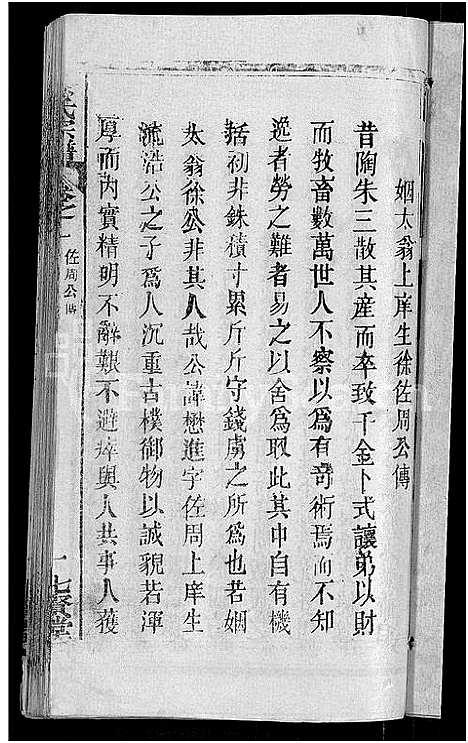 姻太翁上庠生徐佐周公傳
昔陶朱三散其産而卒致千金卜式讓弟以財
而牧畜數萬世人不察以爲有奇術焉而不知
逸者勞之難者易之以舍爲取此其中自有機
括初非銖積寸累斤斤守錢虜之所爲也若姻
太翁徐公非其人哉公諱懋進字佐周上庠生
流浩公之子爲人沉重古樸御物以誠貌若渾
厚而内實精明不辭艱不避瘁與人共事人獲
氏宗譜
卷之一
佐周公傳
一
堂